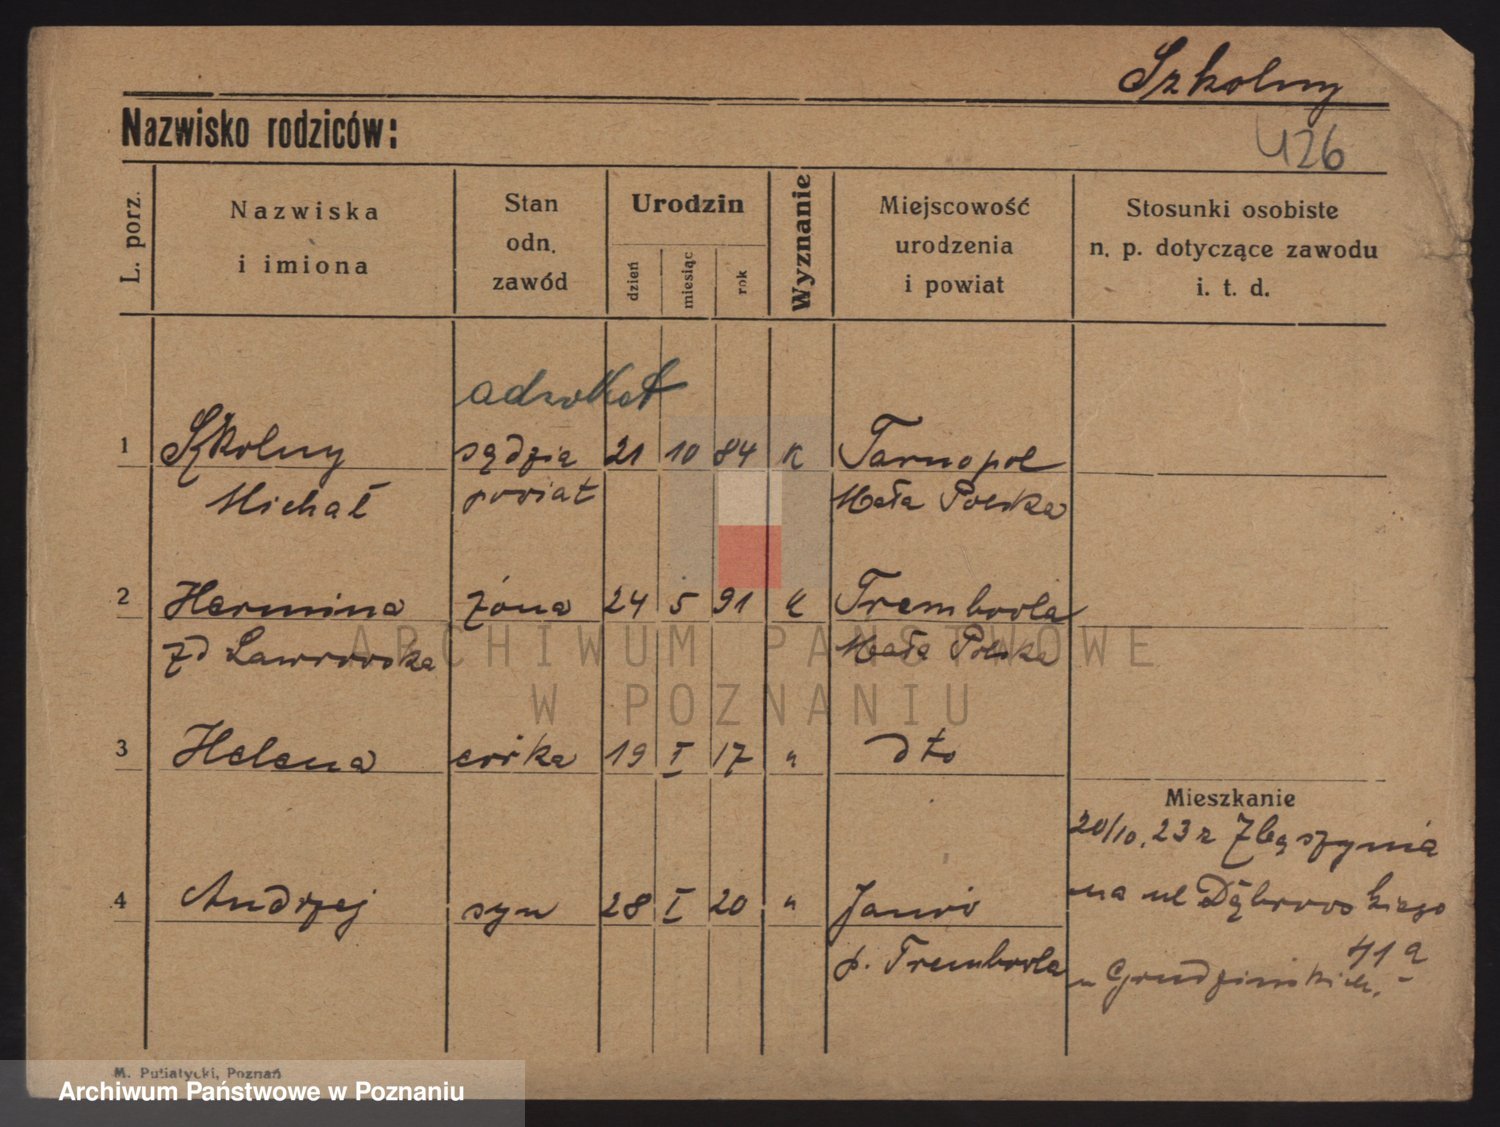 Szkolny
Nazwisko rodziców:
426
L. porz.
Nazwiska
i imiona
Stan
odn.
zawód
Urodzin
dzień
miesiąc
rok
Wyznanie
Miejscowość
urodzenia
i powiat
Stosunki osobiste
n. p. dotyczące zawodu
i. t. d.
adwokat
1 Szkolny sędzia 21 10 84 K Tarnopol
Michał powiat Mała Polska
2 Hermina żona 24 5 91 K Trembovla
zd Lawrowska Mała Polska
3 Helena córka 19 I 17 " dto
Mieszkanie
20/10.23 z Zbąszynia
4 Andrzej syn 28 I 20 " Janów
na ul Dąbrowskiego
41a
p. Trembovla
u Grudzińskich.
ARCHIWUM PAŃSTWOWE
W POZNANIU
M. Putiatycki, Poznań
Archiwum Państwowe w Poznaniu